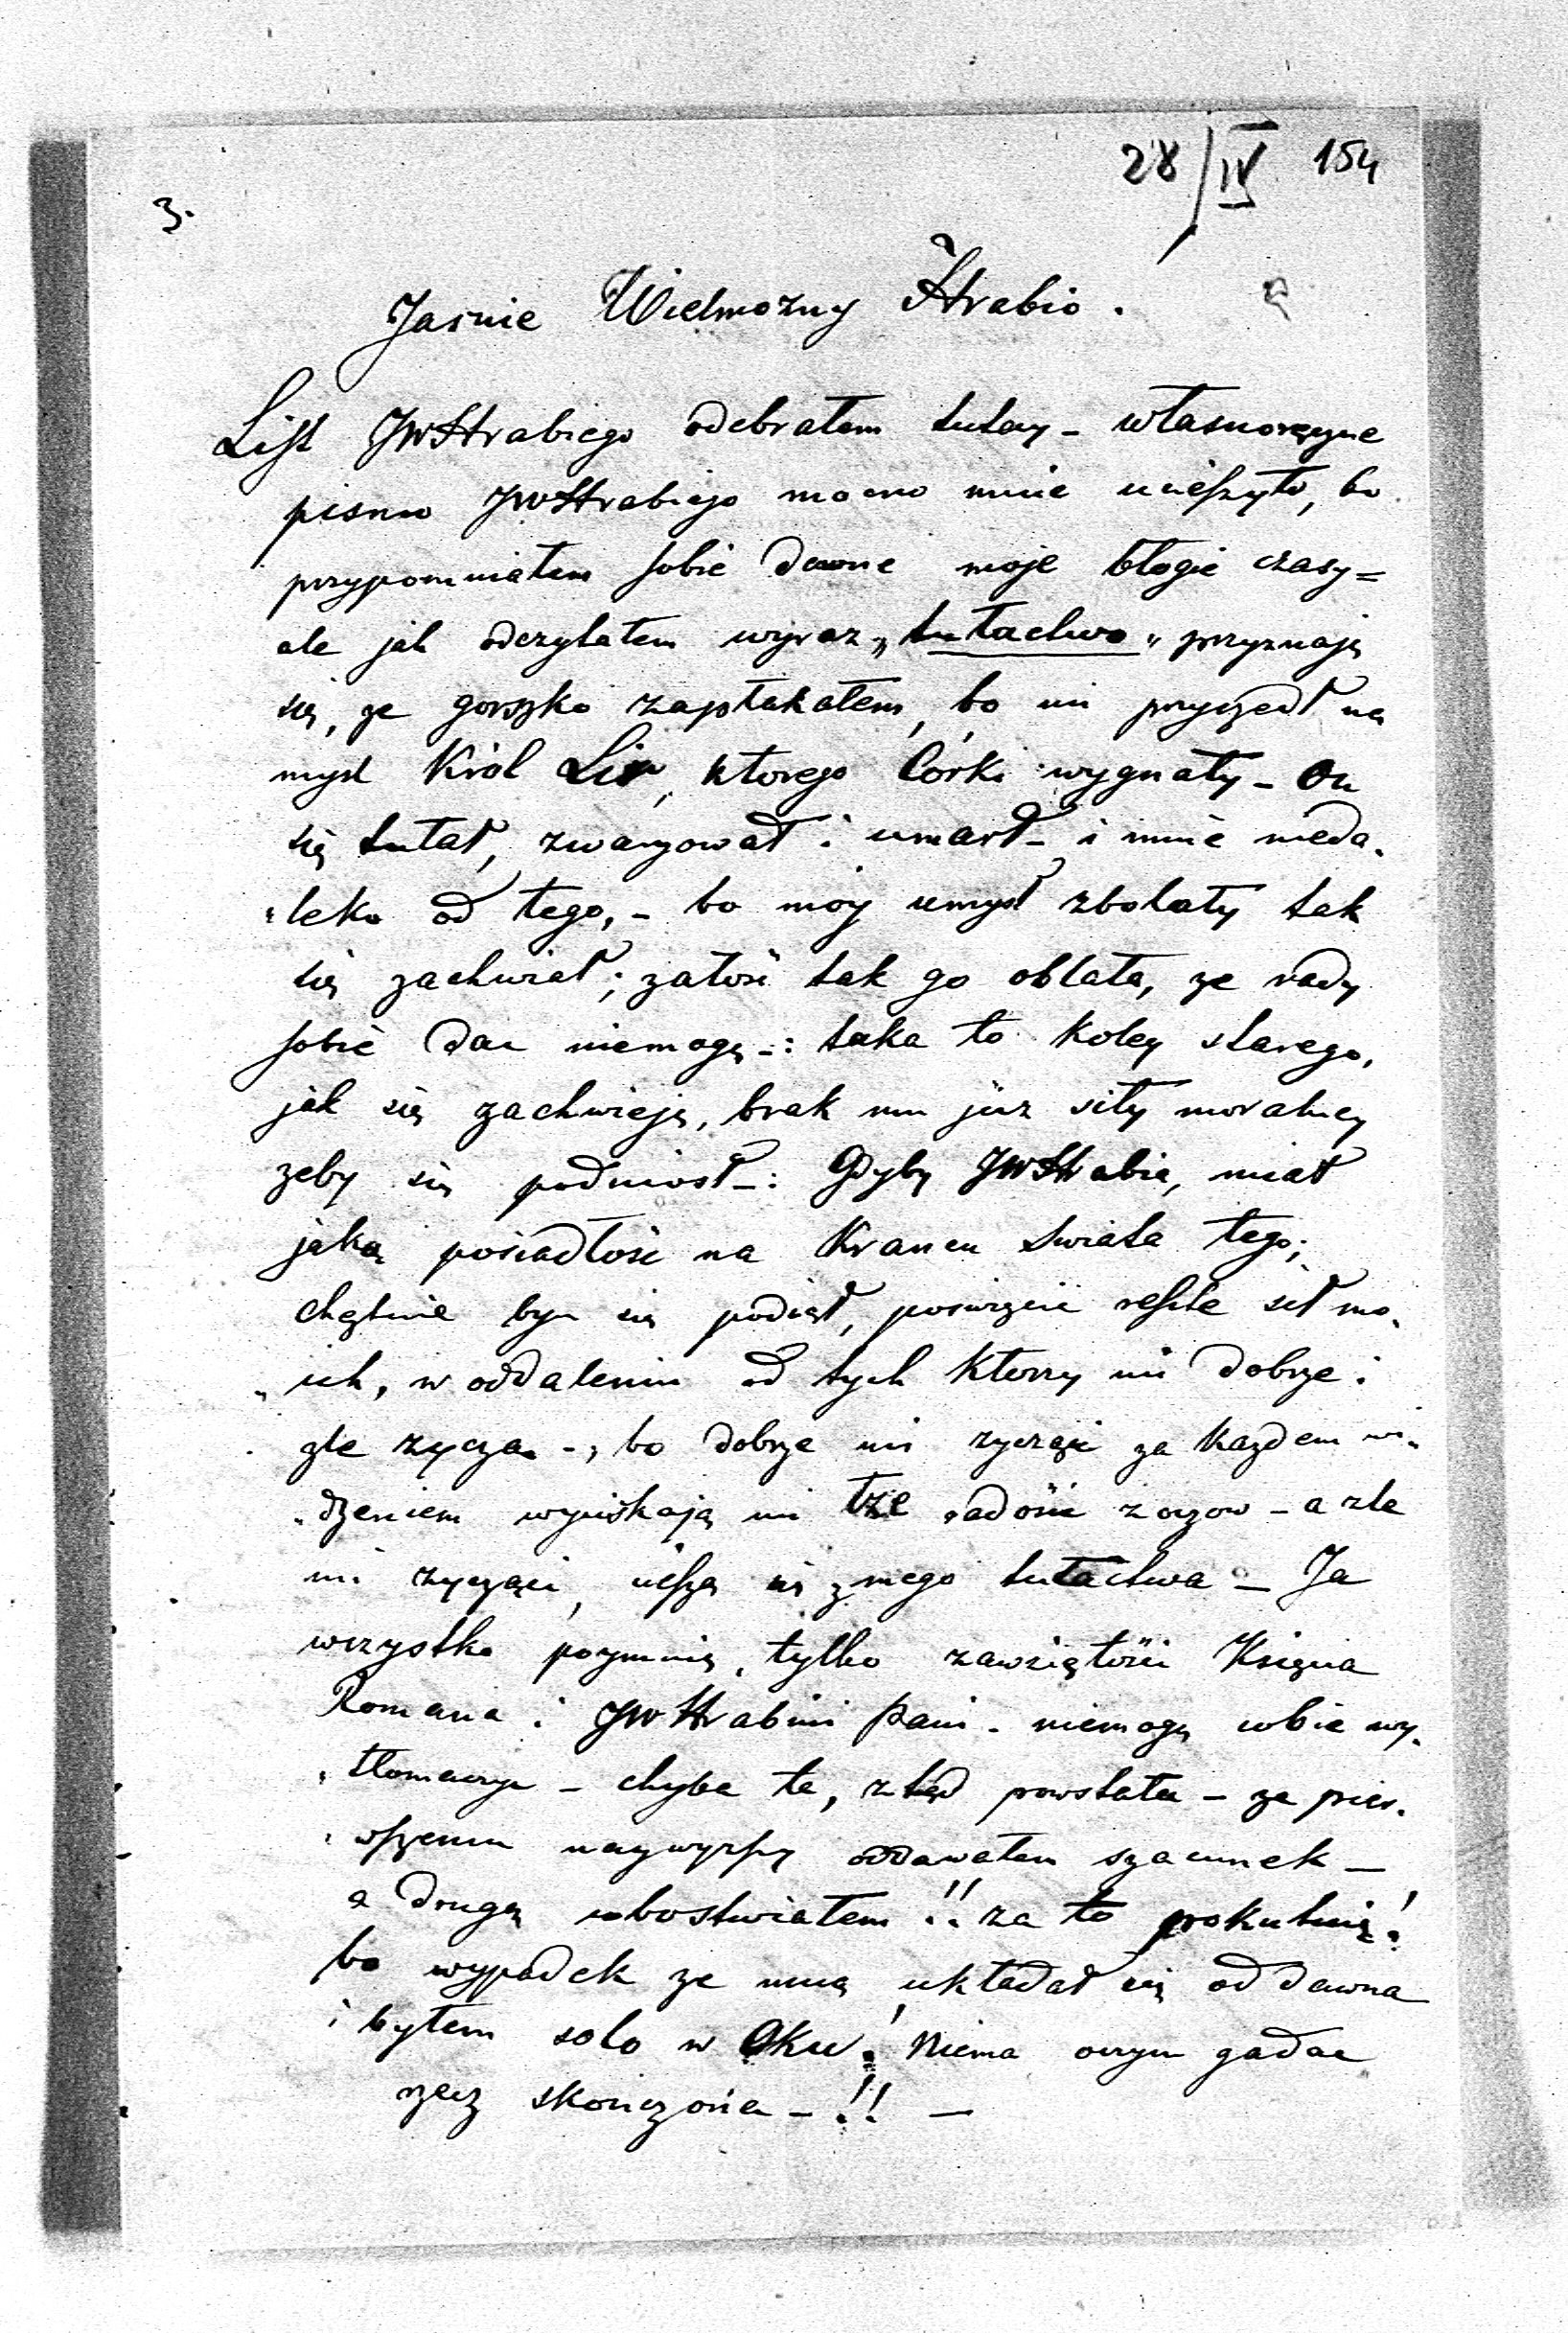 28/IV 154
3.
Jasnie Wielmozny Hrabio.
List JWHrabiego odebrałem tutay - własnoręczne
pismo JWHrabiego mocno mnie ucieszyło, bo
przypomniałem sobie dawne moje błogie czasy =
ale jak odczytałem wyraz „tułactwo" przyznaję
się, ze gorzko zapłakałem, bo mi przyszedł na
mysl Król Lir, ktorego Córki wygnały - On
się tułał, zwaryował i umarł - i mnie nieda-
-leko od tego, - bo móy umysł zbolały tak
się zachwiał; załość tak go oblała, ze rady
sobie dac niemogę -: taka to koley starego,
jak się zachwieję, brak mu juz siły moralney
zeby się podniosł -: Gdyby JWHrabia, miał
jaką posiadłość na Krancu swiata tego;
chętnie bym się podiął, poswięcić resztę sił mo-
-ich, w oddaleniu od tych ktorzy mi dobrze i
zle zyczą -, bo dobrze mi zyczący za kazdem wi-
-dzeniem wyciskają mi łze radości z oczow - a zle
mi zyczący, cieszą się z mego tułactwa - Ja
wszystko poymuię, tylko zawziętości Księcia
Romana i JWHrabini Pani - niemogę sobie wy-
-tłomaczyc - chyba ta, ztąd powstała - ze pier-
-wszemu naywyzszy oddawałem szacunek -
a drugą ubostwiałem!! za to pokutuię!
bo wypadek ze mną układał się od dawna
i byłem solo w Oku! Niema oczym gadac
rzecz skończona - !! -